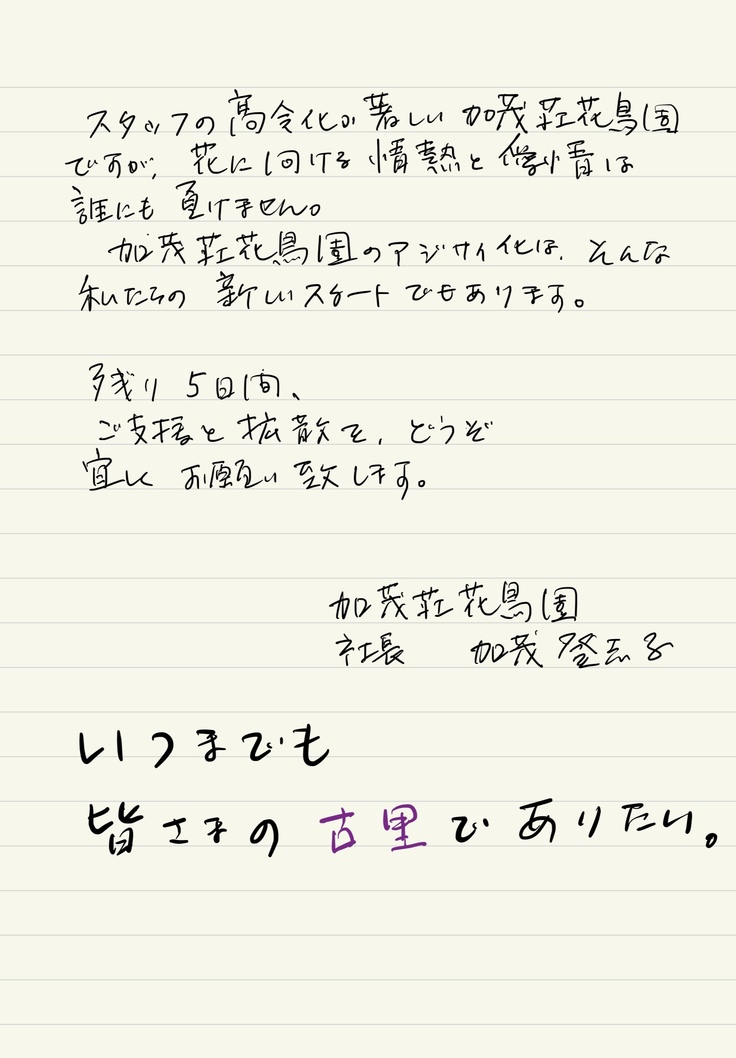 スタッフの高令化が著しい 加茂荘花鳥園
ですが、花に向ける情熱と愛情は
誰にも負けません。
加茂荘花鳥園のアジサイ化は、そんな
私たちの新しいスタートでもあります。
残り5日間、
ご支援と拡散を、どうぞ
宜しくお願い致します。
加茂荘花鳥園
社長 加茂登志子
いつまでも
皆さまの古里でありたい。